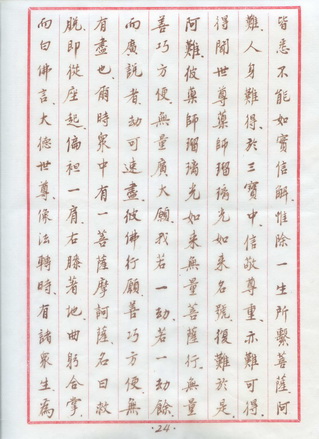 皆悉不能如實信解、惟除一生所繫菩薩阿
難、人身難得、於三寶中、信敬尊重、亦難可得、
得聞世尊藥師瑠璃光如來名號、復難於是、
阿難、彼藥師瑠璃光如來、無量菩薩行、無量
善巧方便、無量廣大願、我若一劫、若一劫餘、
而廣說者、劫可速盡、彼佛行願、善巧方便、無
有盡也、爾時眾中、有一菩薩摩訶薩、名曰救
脫、即從座起、偏袒一肩、右膝著地、曲躬合掌、
而白佛言、大德世尊、像法轉時、有諸眾生、為
·24·